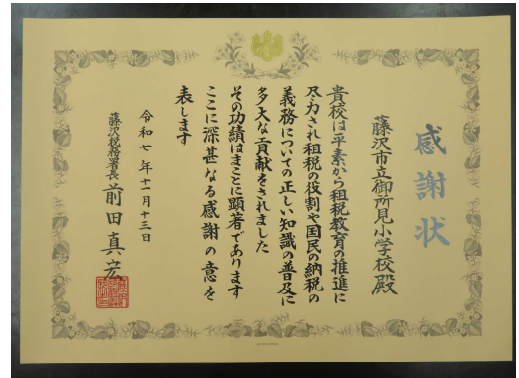 感謝状
藤沢市立御所見小学校殿
貴校は平素から租税教育の推進に
尽力され租税の役割や国民の納税の
義務についての正しい知識の普及に
多大な貢献をされました
その功績はまことに顕著であります
ここに深甚なる感謝の意を
表します
令和七年十一月十三日
藤沢税務署長 前田真宏